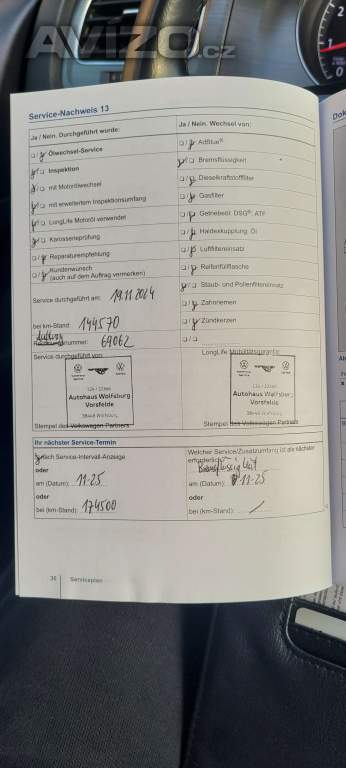 Avizo.cz
Service-Nachweis 13
Ja / Nein. Durchgeführt wurde:
Ölwechsel-Service
Inspektion
mit Motorölwechsel
mit erweitertem Inspektionsumfang
LongLife Motoröl verwendet
Karosserieprüfung
Reparaturempfehlung
Kundenwunsch
(auch auf dem Auftrag vermerken)
Service durchgeführt am: 19.11.2024
bei km-Stand: 144570
nummer: 69062
Service durchgeführt von:
Autohaus Wolfsburg
Vorsfelde
38448 Wolfsburg
Stempel des Volkswagen Partners
Ja / Nein. Wechsel von:
AdBlue®
Bremsflüssigkeit
Dieselkraftstofffilter
Gasfilter
Getriebeöl: DSG®, ATF
Haldexkupplung: Öl
Luftfiltereinsatz
Reifenfüllflasche
Staub- und Pollenfiltereinsatz
Zahnriemen
Zündkerzen
LongLife Mobilitätsgarantie
Autohaus Wolfsburg
Vorsfelde
38448 Wolfsburg
Stempel des Volkswagen Partners
Ihr nächster Service-Termin
nach Service-Intervall-Anzeige
oder
am (Datum): 11-25
oder
bei (km-Stand): 174500
Welcher Service/Zusatzumfang ist als nächster
erforderlich?
Bremsflüssigkeit
am (Datum): 11-25
oder
bei (km-Stand):
36 Serviceplan
Dok